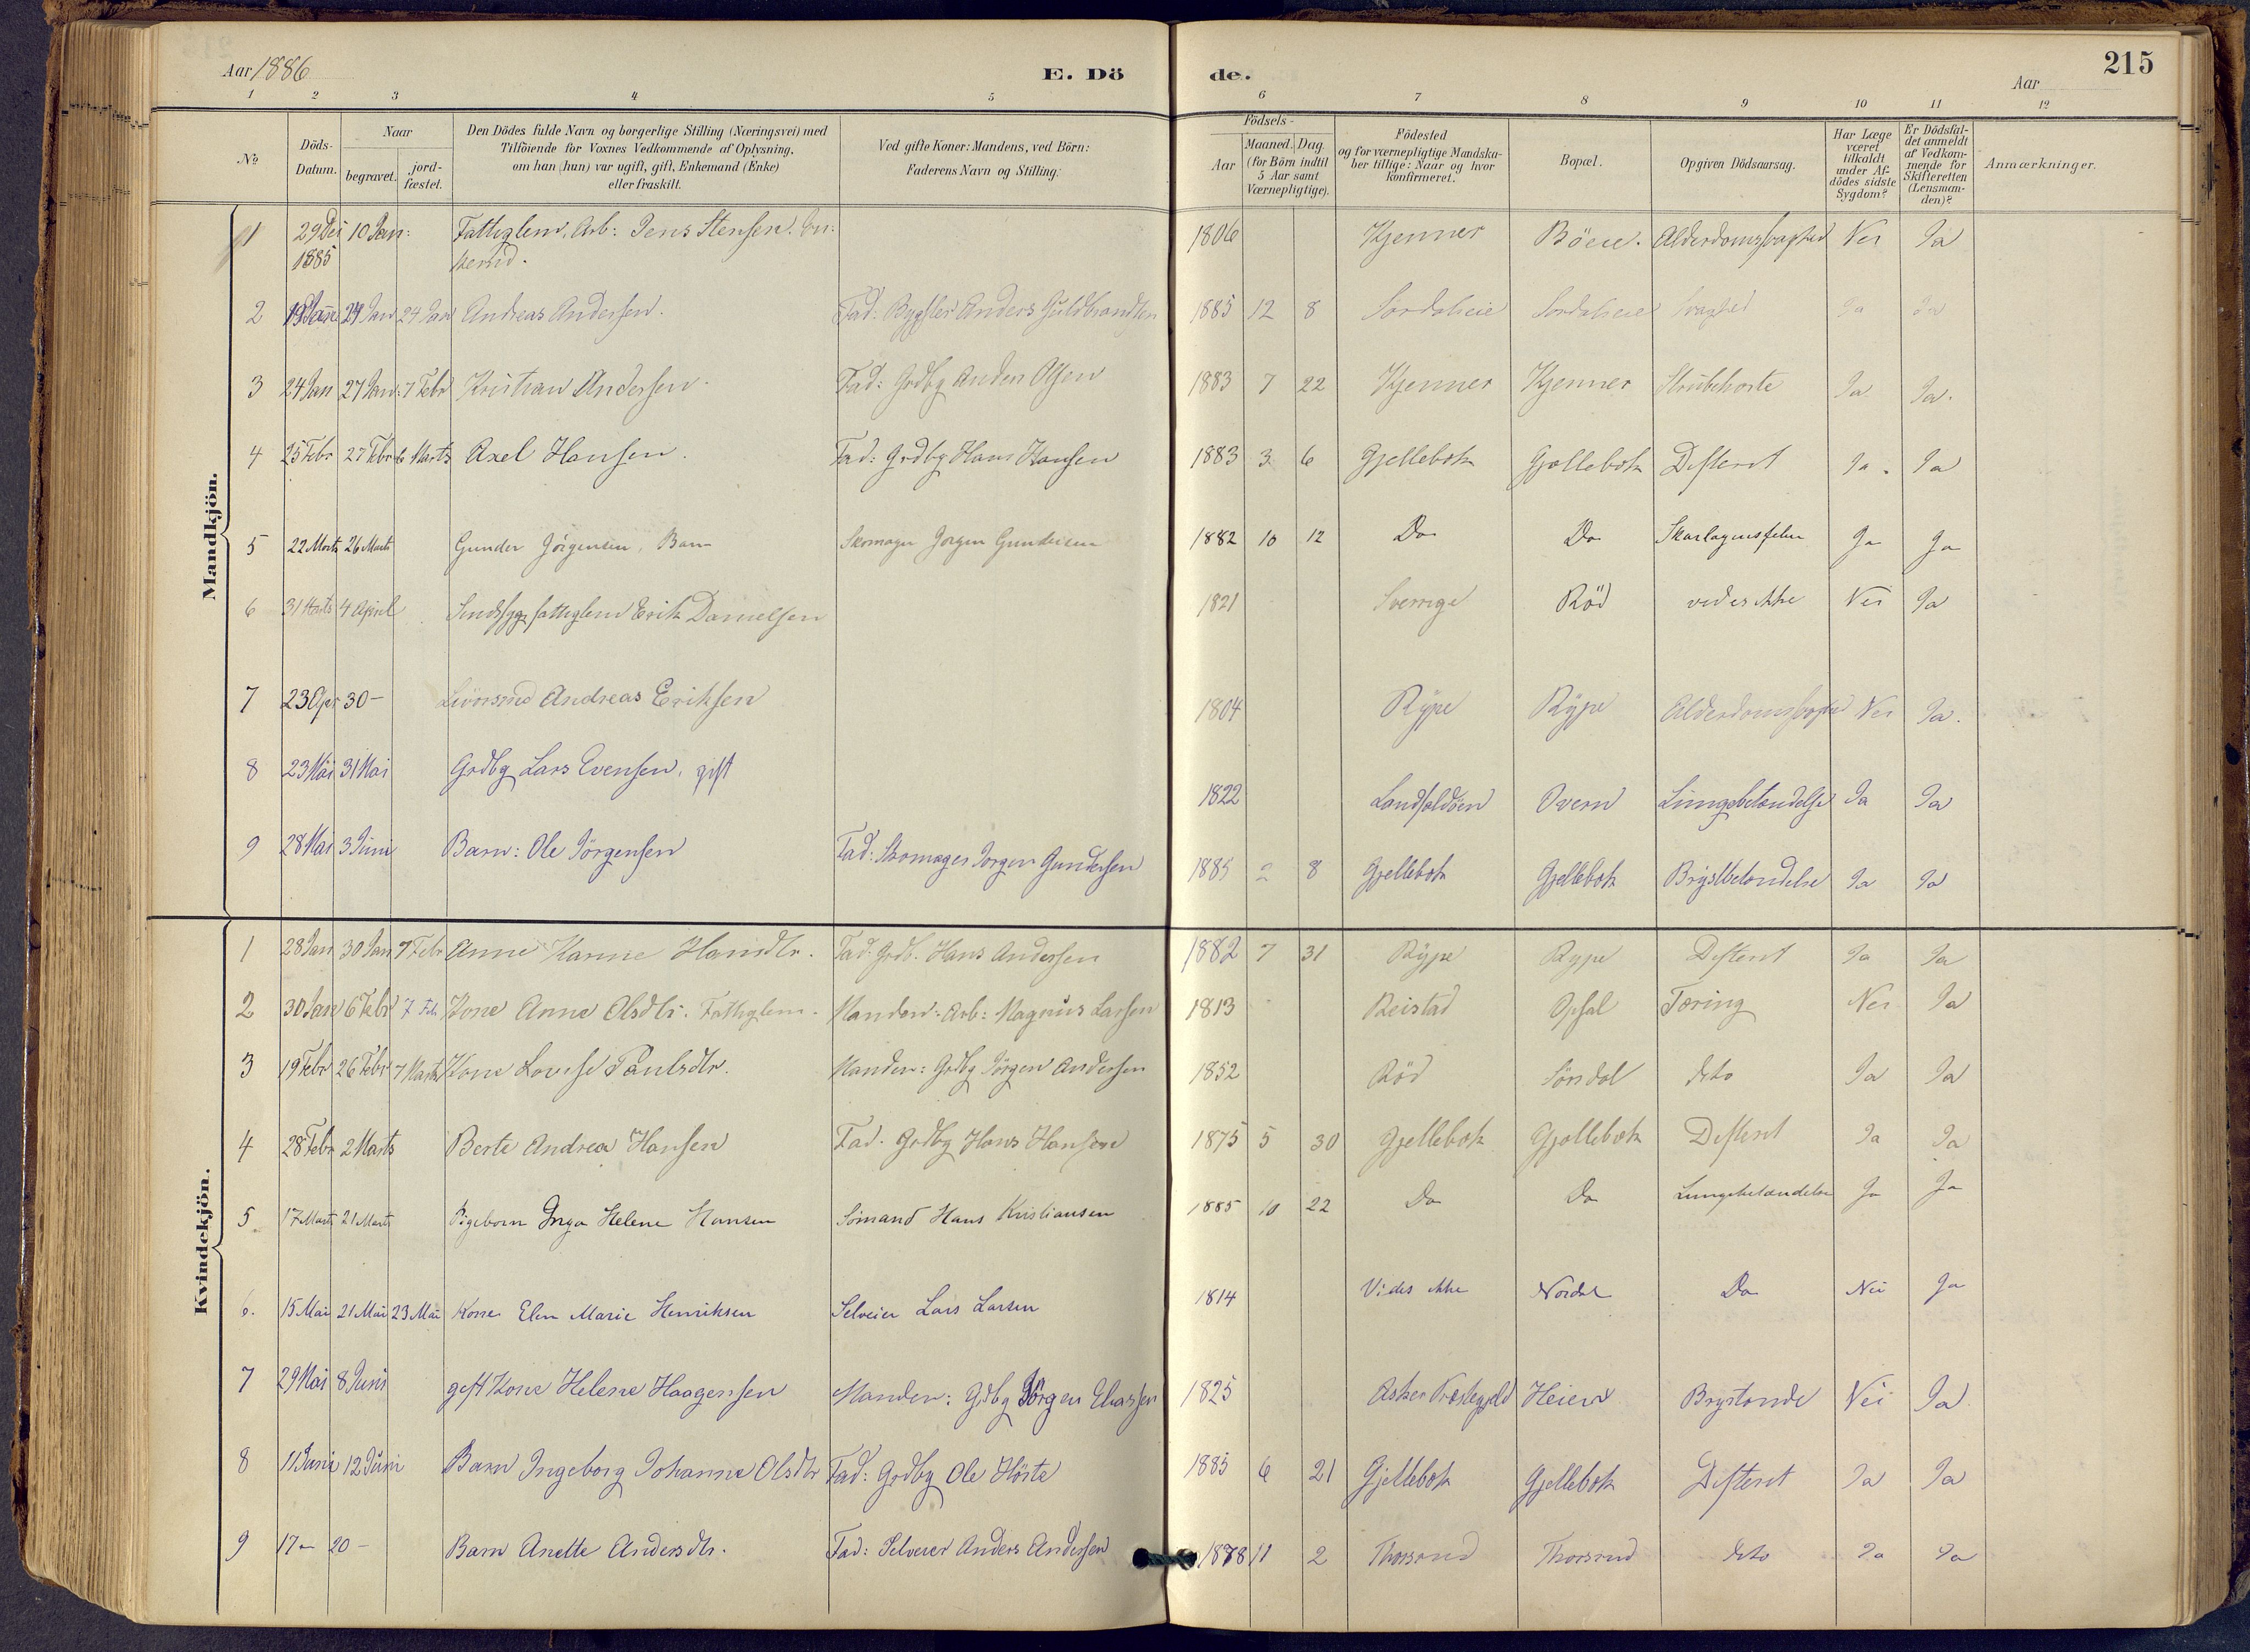 Aar 1886
E. Dö
de.
Aar
215
1 2 3 4 5 6 7 8 9 10 11 12
No
Döds-Datum.
Naar
begravet.
jord-fæstet.
Den Dödes fulde Navn og borgerlige Stilling (Næringsvei) med
Tilföiende for Voxnes Vedkommende af Oplysning,
om han (hun) var ugift, gift, Enkemand (Enke)
eller fraskilt.
Ved gifte Koner: Mandens, ved Börn:
Faderens Navn og Stilling.
Födsels-
Aar
Maaned. Dag.
(for Börn indtil
5 Aar samt
Værnepligtige).
Födested
og for værnepligtige Mandska-
ber tillige: Naar og hvor
konfirmeret.
Bopæl.
Opgiven Dödsaarsag.
Har Læge
været
tilkaldt
under Af-
dödes sidste
Sygdom?
Er Dödsfal-
det anmeldt
af Vedkom-
mende for
Skifteretten
(Lensman-
den)?
Anmærkninger.
Mandkjön.
1 29 Dec 10 Jan: Fattiglem, Arb: Jens Stensen. En: 1806 Kjenner Böeie. Alderdomssvaghed Nei Ja
1885 kemd.
2 19 Jan 24 Jan 24 Jan Andreas Andersen. Fad: Bygsler Anders Guldbrandsen 1885 12 8 Sordaleie Sordaleie Svaghed Ja Ja
3 24 Jan 27 Jan: 7 Febr Kristian Andersen. Fad: Grdbg Anders Olsen 1883 7 22 Kjenner Kjenner Strubehoste Ja Ja.
4 25 Febr 27 Febr 6 Marts Axel Hansen. Fad: Grdbg Hans Hansen 1883 3 6 Gjellebæk Gjellebæk Difterit Ja. Ja
5 22 Marts 26 Marts Gunder Jörgensen, Barn Skomager Jörgen Gundersen 1882 10 12 Do Do Skarlagensfeber Ja Ja
6 31 Marts 4 April Sindssyg fattiglem Erik Danielsen 1821 Sverrige Röd vides ikke Nei Ja
7 23 Apr 30 - Livörsmd Andreas Eriksen 1804 Rype Rype Alderdomssvaghed Nei Ja.
8 23 Mai 31 Mai Grdbg Lars Evensen, gift 1822 Landfaldöen Overn Lungebetændelse Ja Ja
9 28 Mai 3 Juni Barn: Ole Jörgensen Fad: Skomager Jörgen Gundersen 1885 2 8 Gjellebæk Gjellebæk Brystbetændelse Ja Ja
Kvindekjön.
1 28 Jan 30 Jan 7 Febr Anne Karine Hansdtr. Fad: Grdb. Hans Andersen 1882 7 31 Rype Rype Difterit Ja Ja
2 30 Jan 6 Febr 7 Feb Kone Anne Olsdtr. Fattiglem. Manden: Arb: Magnus Larsen 1813 Reistad Opsal Tæring Nei Ja
3 19 Febr 26 Febr 7 Marts Kone Lovise Paulsdtr. Manden: Grdbg Jörgen Andersen 1852 Röd Sörsdal dito Ja Ja
4 28 Febr 2 Marts Berte Andrea Hansen Fad. Grdbg Hans Hansen 1875 5 30 Gjellebæk Gjellebæk Difterit Ja Ja
5. 17 Marts 21 Marts Pigebarn Inga Helene Hansen Sömand Hans Kristiansen 1885 10 22 Do Do Lungebetændelse Ja Ja
6. 15 Mai 21 Mai 23 Mai Kone Elen Marie Henriksen Selveier Lars Larsen 1814 Vides ikke Nordal Do Nei Ja
7 29 Mai 8 Juni gift Kone Helene Haagensen Manden: Grdbg Jörgen Eliassen 1825 Asker Præstegjeld Heien Brystonde Nei Ja
8 11 Juni 12 Juni Barn Ingeborg Johanne Olsdtr Fad: Grdbg Ole Hörte 1885 6 21 Gjellebæk Gjellebæk Difterit Ja Ja
9 17 - 20 - Barn Anette Andersdtr. Fad: Selveier Anders Andersen 1878 11 2 Thorsrud Thorsrud dito Ja Ja